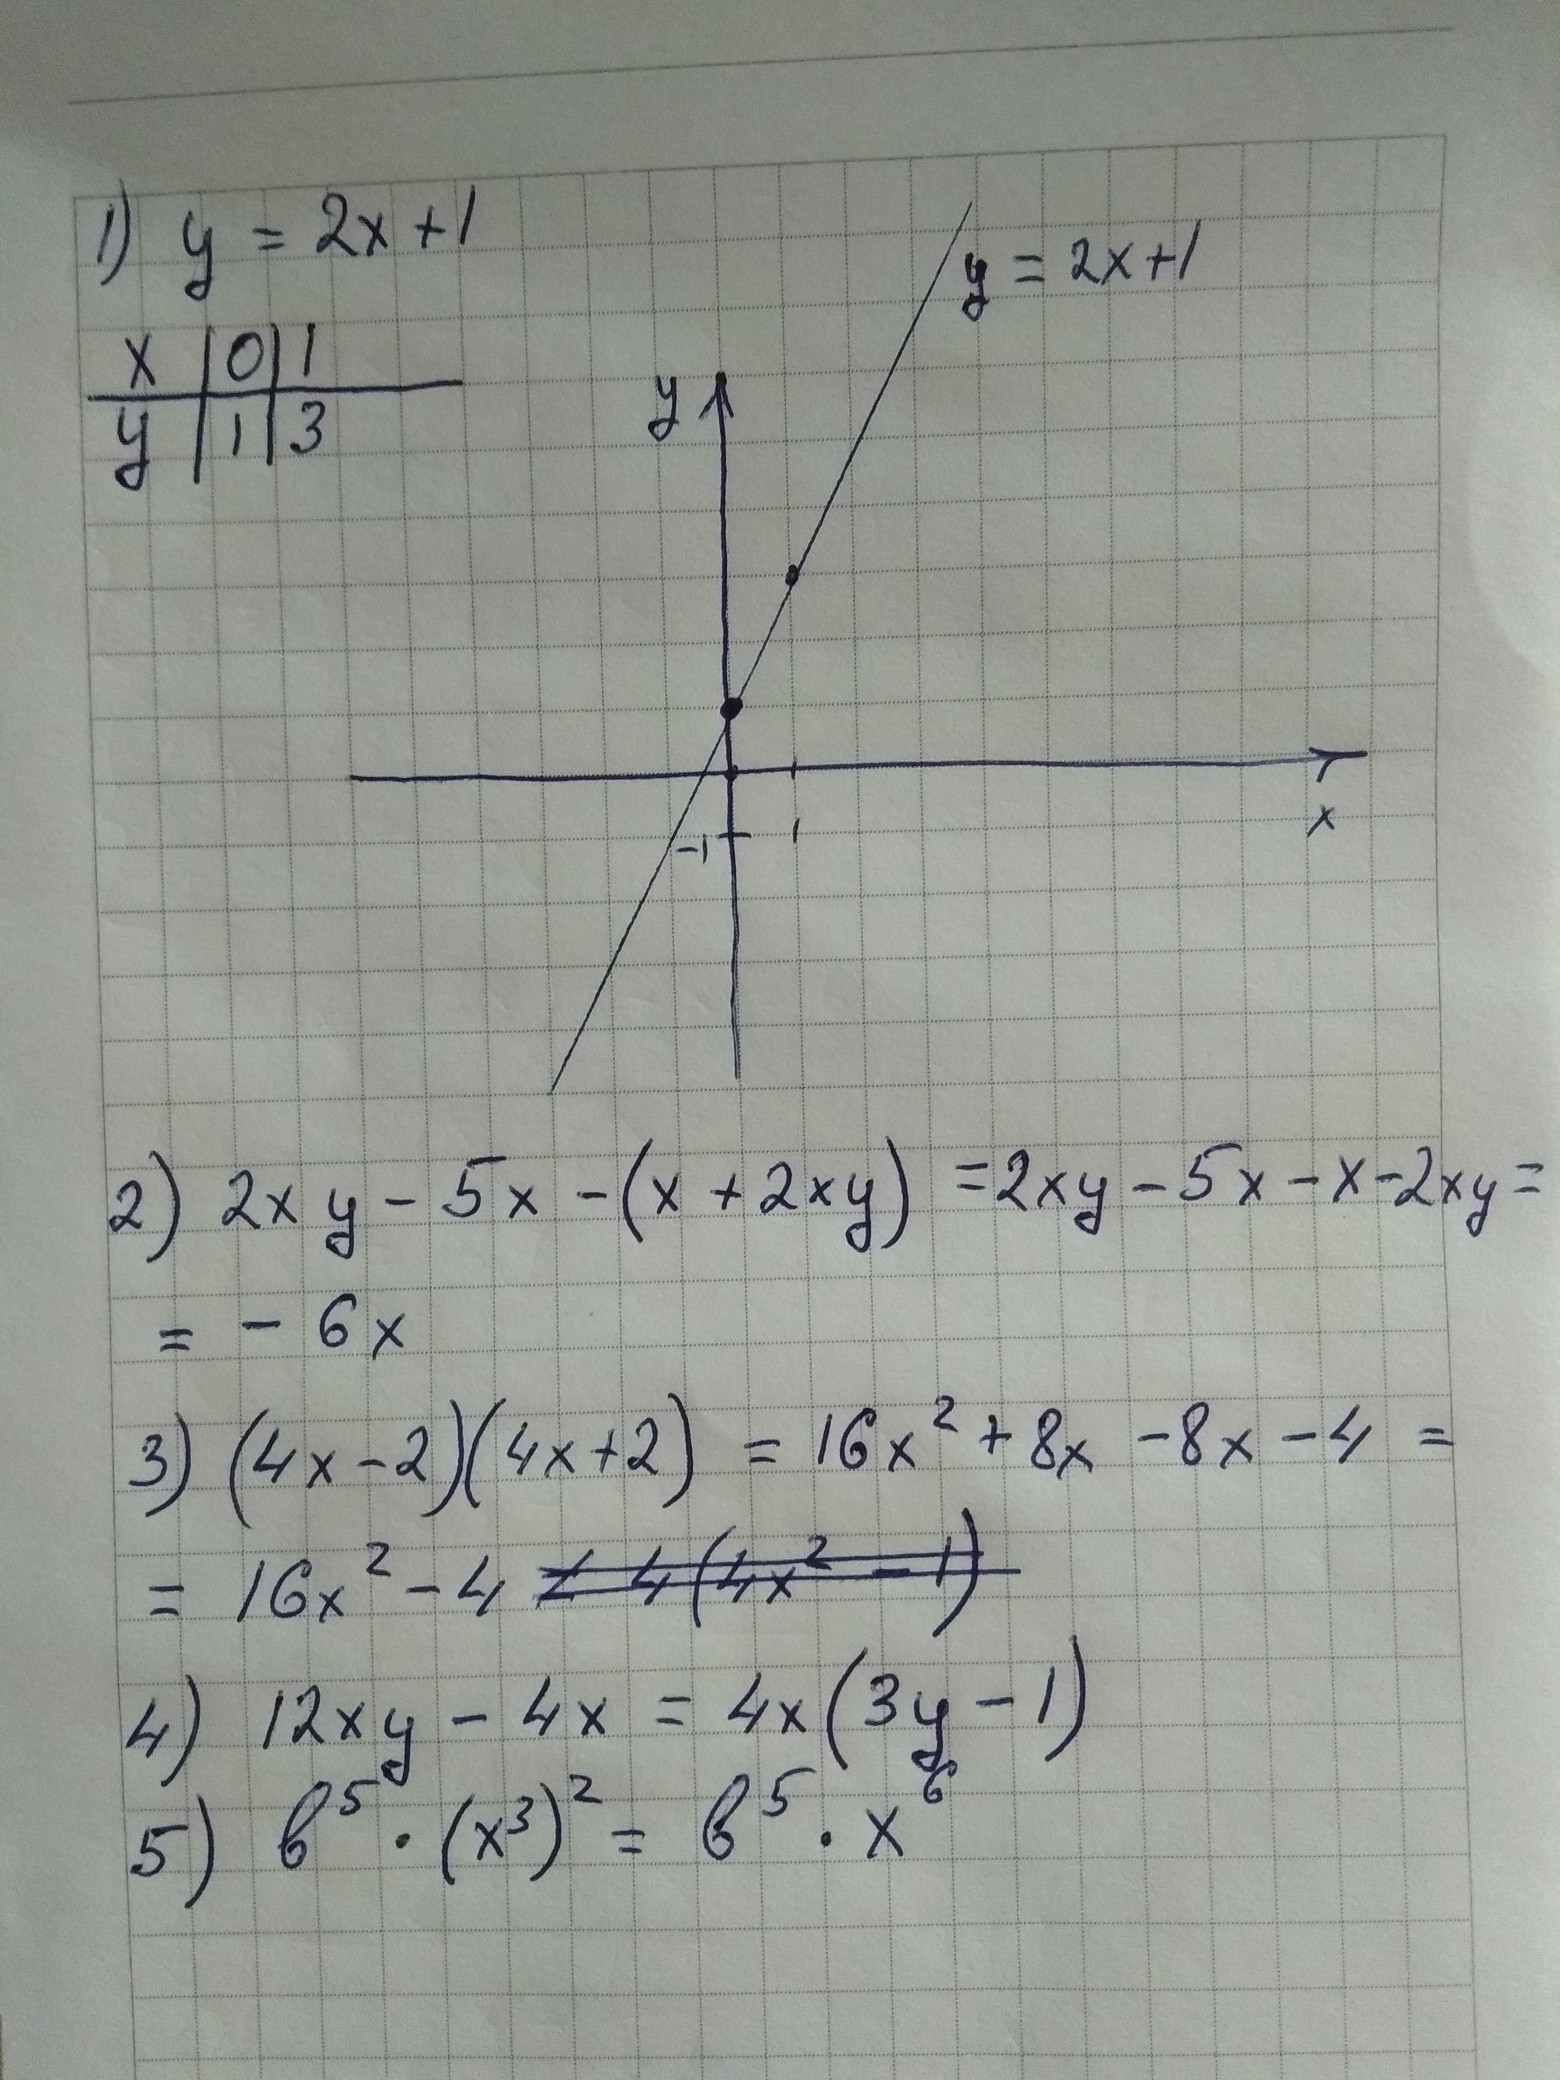 1) y = 2x + 1
y = 2x+1
x | 0 | 1
y | 1 | 3
y
x
-1
1
2) 2xy - 5x - (x + 2xy) = 2xy - 5x - x - 2xy =
= - 6x
3) (4x - 2)(4x + 2) = 16x² + 8x - 8x - 4 =
= 16x² - 4 = 4(4x² - 1)
4) 12xy - 4x = 4x(3y - 1)
5) в⁵ · (x³)² = в⁵ · x⁶